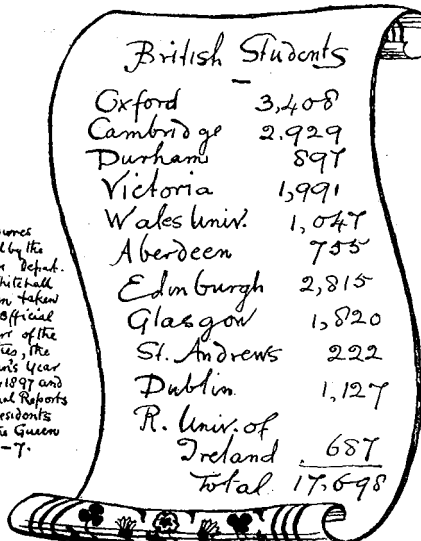 British Students
Oxford 3,408
Cambridge 2.929
Durham 897
Victoria 1,991
Wales Univ. 1,047
Aberdeen 755
Edinburgh 2,815
Glasgow 1,820
St. Andrews 222
Dublin 1,127
R. Univ. of
Ireland 687
Total 17,698
by the
Depart.
taken
Official
of the
the
Year
1897 and
Reports
Queen
-7.